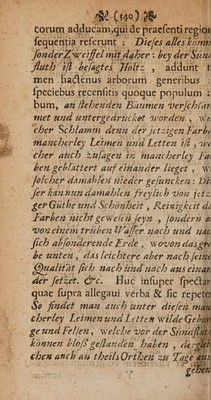 (140)
torum adducam, qui de praesenti region
sequentia referunt: Dieses alles komm
sonder Zweiffel mit daher: bey der Sünd
fluth ist besagtes Holtz, addunt t
men hactenus arborum generibus
speciebus recensitis quoque populum :
bum, an stehenden Bäumen verschläm
met und untergedrücket worden, we
cher Schlamm denn der jetzigen Farb
mancherley Leimen und Letten ist, we
cher auch zusagen in mancherley Fa
ben geblättert auf einander lieget, w
solcher damahlen nieder gesuncken: Di
ser kan nun damahlen freylich von jetz
ger Güthe und Schönheit, Reinigkeit de
Farben nicht gewesen seyn, sondern a
von einem trüben Wasser nach und nac
sich absonderende Erde, wovon das gro
be unten, das leichtere aber nach seine
Qualität sich nach und noch aus einan
der setzet. &c. Huc insuper spectar
quae supra allegavi verba & sic repeto
So findet man auch unter diesen man
cherley Leimen und Letten wilde Gebür
ge und Felsen, welche vor der Sündfluth
können bloß gestanden haben, derglei
chen auch an theils Orthen zu Tage aus
gehen